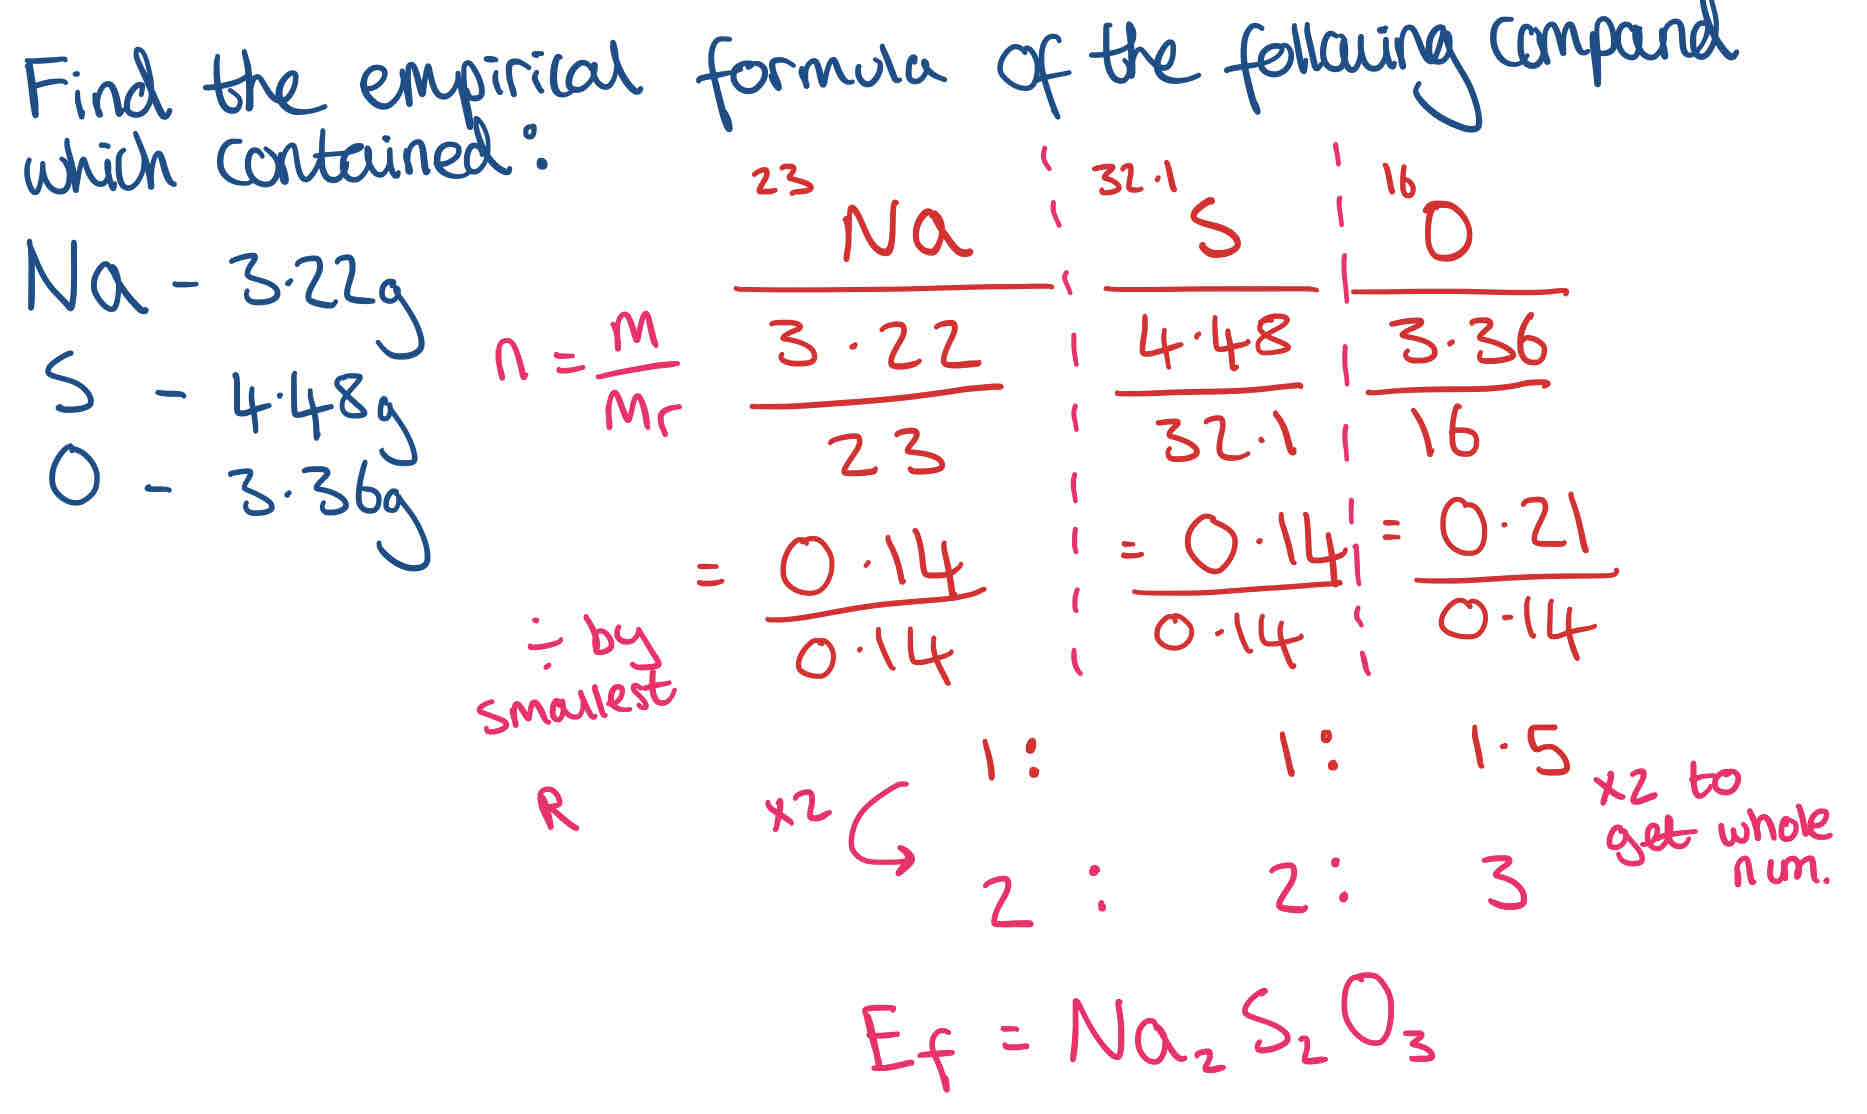 Find the empirical formula of the following compound
which contained:
Na - 3.22g
S - 4.48g
O - 3.36g
23 Na 32.1 S 16 O
n = m/Mr 3.22/23 4.48/32.1 3.36/16
= 0.14/0.14 = 0.14/0.14 = 0.21/0.14
÷ by
smallest
1 : 1 : 1.5
R x2 x2 to
get whole
num.
2 : 2 : 3
Ef = Na₂S₂O₃